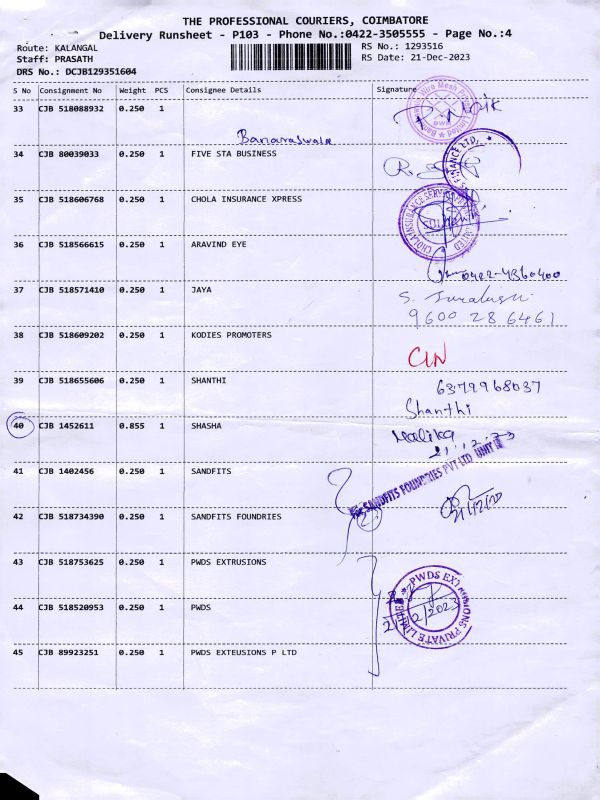 THE PROFESSIONAL COURIERS, COIMBATORE
Delivery Runsheet - P103 - Phone No.:0422-3505555 - Page No.:4
Route: KALANGAL
RS No.: 1293516
Staff: PRASATH
RS Date: 21-Dec-2023
DRS No.: DCJB129351604
S No Consignment No Weight PCS Consignee Details Signature
33 CJB 518088932 0.250 1
Banaraswala
34 CJB 80039033 0.250 1 FIVE STA BUSINESS
FINANCE LTD.
35 CJB 518606768 0.250 1 CHOLA INSURANCE XPRESS
CHOLA INSURANCE SERVICES
36 CJB 518566615 0.250 1 ARAVIND EYE
0422-4360400
37 CJB 518571410 0.250 1 JAYA
S.
9600 28 6461
38 CJB 518609202 0.250 1 KODIES PROMOTERS
39 CJB 518655606 0.250 1 SHANTHI
6379968037
Shanthi
40 CJB 1452611 0.855 1 SHASHA
Malika
21.12.23
41 CJB 1402456 0.250 1 SANDFITS
For SANDFITS FOUNDRIES PVT LTD UNIT II
42 CJB 518734390 0.250 1 SANDFITS FOUNDRIES
43 CJB 518753625 0.250 1 PWDS EXTRUSIONS
PWDS EXTRUSIONS PRIVATE LIMITED
44 CJB 518520953 0.250 1 PWDS
45 CJB 89923251 0.250 1 PWDS EXTEUSIONS P LTD